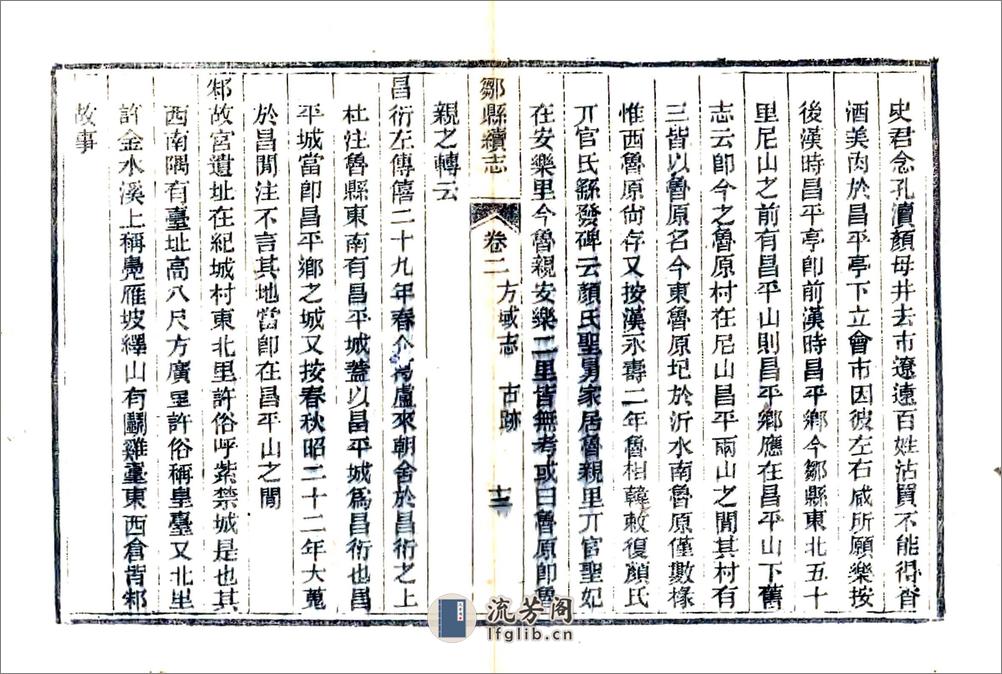 史君念孔瀆顏母井去市遼遠百姓沽買不能得香
酒美肉於昌平亭下立會市因彼左右咸所願樂按
後漢時昌平亭卽前漢時昌平鄉今鄒縣東北五十
里尼山之前有昌平山則昌平鄉應在昌平山下舊
志云卽今之魯原村在尼山昌平兩山之閒其村有
三皆以魯原名今東魯原圮於沂水南魯原僅數椽
惟西魯原尙存又按漢永壽二年魯相韓敕復顏氏
丌官氏繇發碑云顏氏聖舅家居魯親里丌官聖妃
在安樂里今魯親安樂二里皆無考或曰魯原卽魯
鄒縣續志 卷二 方域志 古跡 十二
親之轉云
昌衍左傳僖二十九年春介葛盧來朝舍於昌衍之上
杜注魯縣東南有昌平城蓋以昌平城爲昌衍也昌
平城當卽昌平鄉之城又按春秋昭二十二年大蒐
於昌閒注不言其地當卽在昌平山之閒
邾故宮遺址在紀城村東北里許俗呼紫禁城是也其
西南隅有臺址高八尺方廣里許俗稱皇臺又北里
許金水溪上稱鳧雁坡繹山有鬭雞臺東西倉皆邾
故事
流芳阁
lfglib.cn